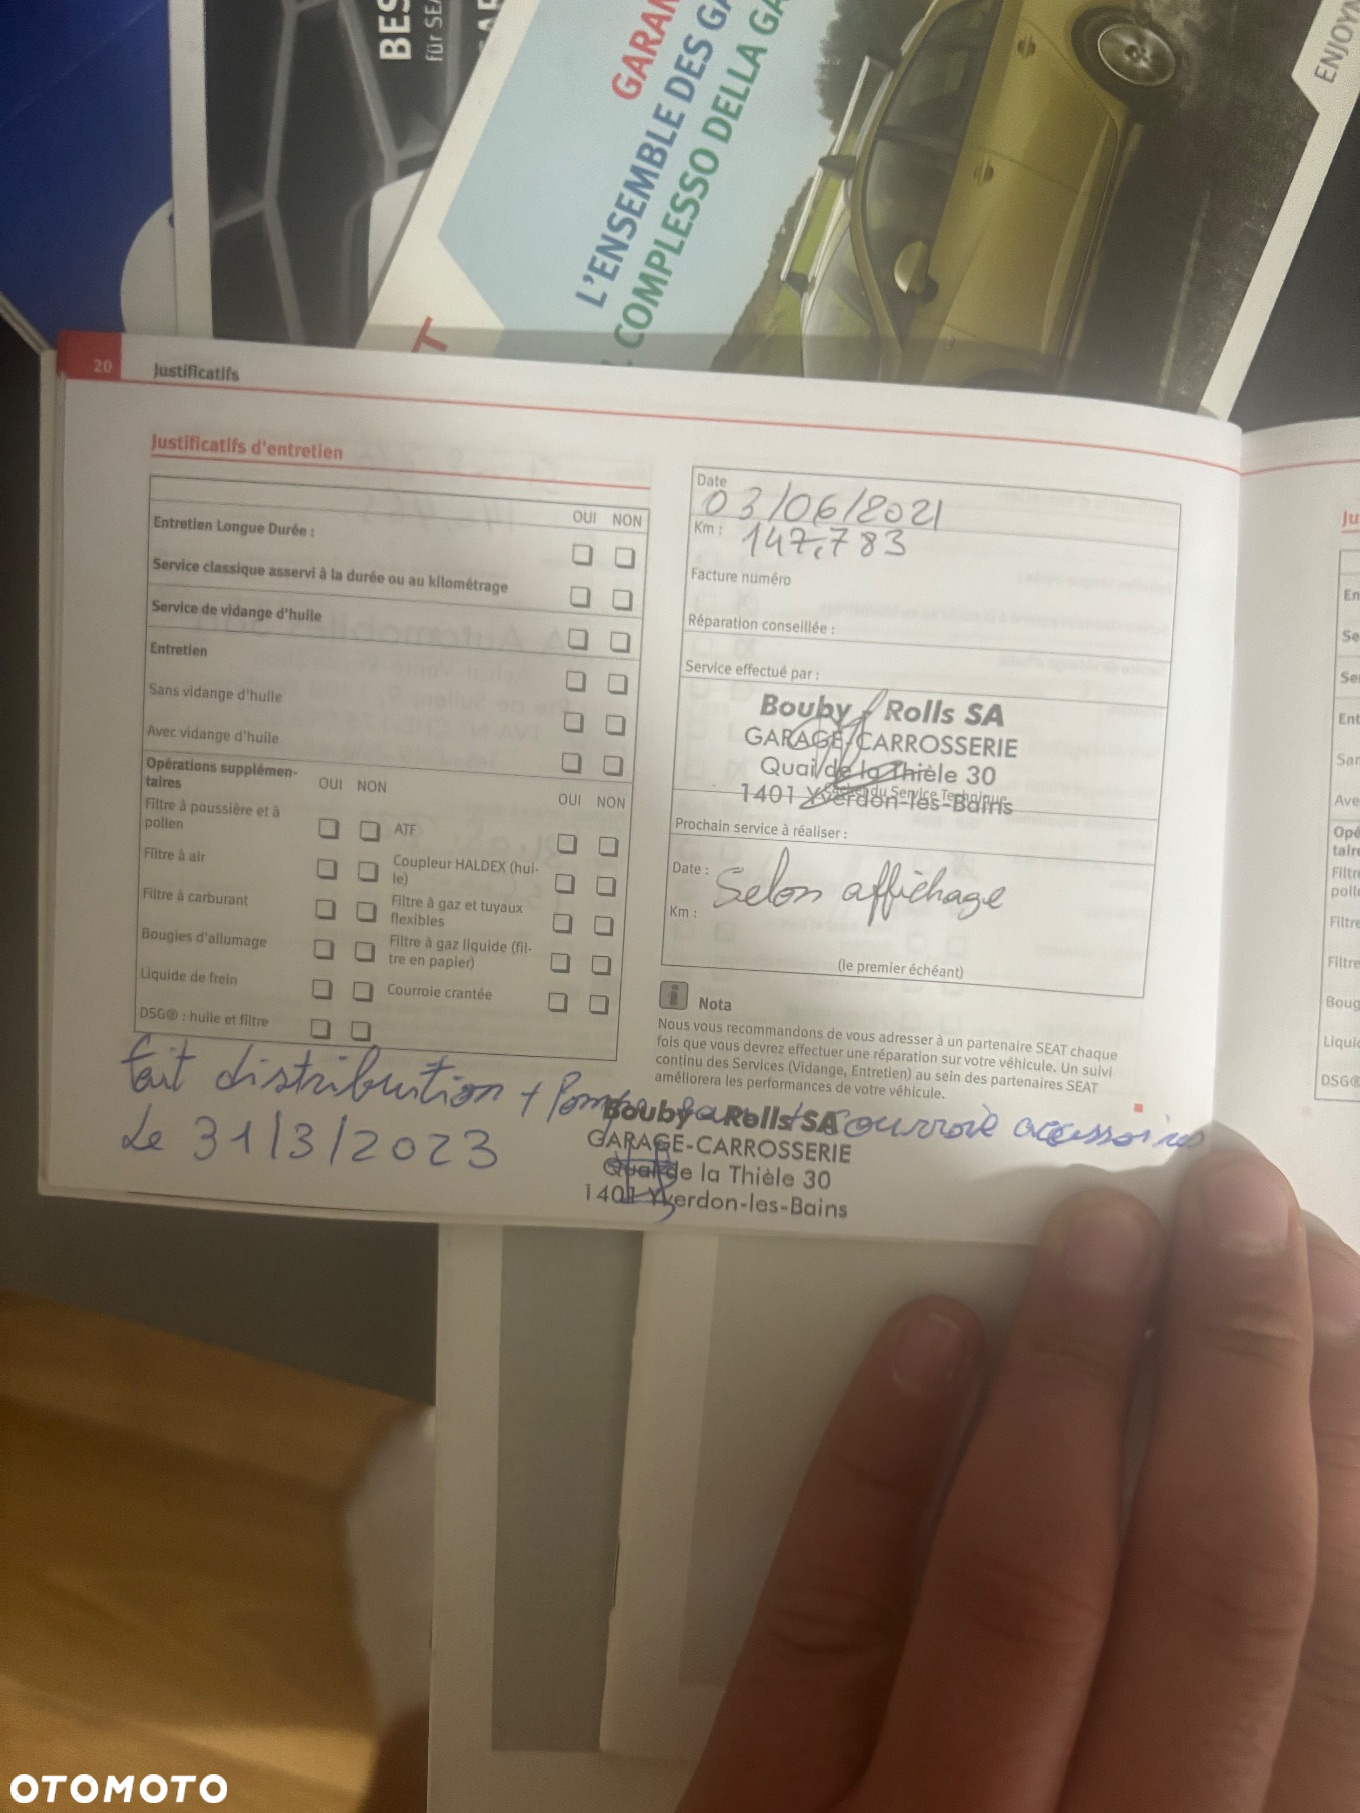 BES
für SEA
GARAN
L'ENSEMBLE DES GA
COMPLESSO DELLA GA
ENJOYN
T
20 Justificatifs
Justificatifs d'entretien
OUI NON
Entretien Longue Durée :
Service classique asservi à la durée ou au kilométrage
Service de vidange d'huile
Entretien
Sans vidange d'huile
Avec vidange d'huile
Opérations supplémen-
taires
OUI NON
OUI NON
Filtre à poussière et à
pollen
ATF
Filtre à air
Coupleur HALDEX (hui-
le)
Filtre à carburant
Filtre à gaz et tuyaux
flexibles
Bougies d'allumage
Filtre à gaz liquide (fil-
tre en papier)
Liquide de frein
Courroie crantée
DSG® : huile et filtre
Date
03/06/2021
Km : 147.783
Facture numéro
Réparation conseillée :
Service effectué par :
Bouby - Rolls SA
GARAGE-CARROSSERIE
Quai de la Thièle 30
1401 Yverdon-les-Bains
du Service Technique
Prochain service à réaliser :
Date : Selon affichage
Km :
(le premier échéant)
i Nota
Nous vous recommandons de vous adresser à un partenaire SEAT chaque
fois que vous devrez effectuer une réparation sur votre véhicule. Un suivi
continu des Services (Vidange, Entretien) au sein des partenaires SEAT
améliorera les performances de votre véhicule.
fait distribution + Pompe + courroie accessoires
Le 31/3/2023
Bouby - Rolls SA
GARAGE-CARROSSERIE
Quai de la Thièle 30
1401 Yverdon-les-Bains
Ju
En
Se
Se
Ent
Sar
Ave
Opé
taire
Filtre
polle
Filtre
Filtre
Boug
Liquid
DSG®
OTOMOTO